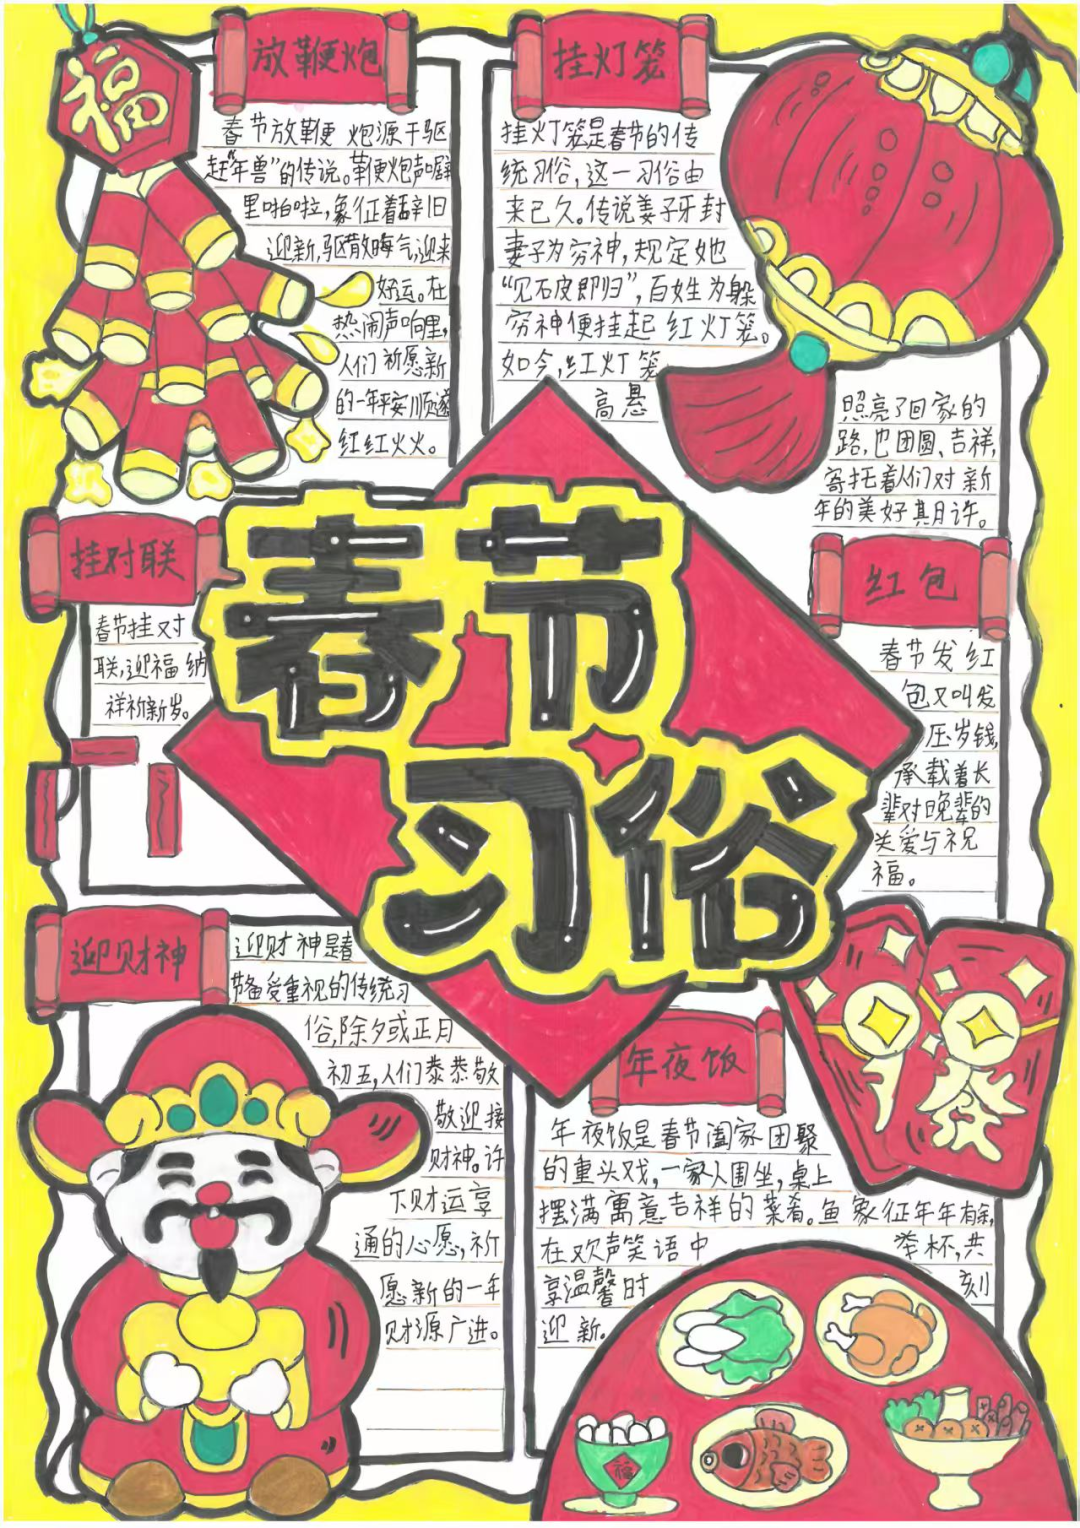 福
放鞭炮
春节放鞭炮源于驱
赶“年兽”的传说。鞭炮声噼
里啪啦,象征着辞旧
迎新,驱散晦气,迎来
好运。在
热闹声响里,
人们祈愿新
的一年平安顺遂
红红火火。
挂灯笼
挂灯笼是春节的传
统习俗,这一习俗由
来已久。传说姜子牙封
妻子为穷神,规定她
“见破即归”,百姓为躲
穷神便挂起红灯笼。
如今,红灯笼
高悬
照亮了回家的
路,也团圆、吉祥,
寄托着人们对新
年的美好期许。
春节
习俗
挂对联
春节挂对
联,迎福纳
祥祈新岁。
红包
春节发红
包又叫发
压岁钱,
承载着长
辈对晚辈的
关爱与祝
福。
迎财神
迎财神是春
节备受重视的传统习
俗,除夕或正月
初五,人们恭恭敬
敬迎接
财神。许
下财运享
通的心愿,祈
愿新的一年
财源广进。
年夜饭
年夜饭是春节阖家团聚
的重头戏,一家人围坐,桌上
摆满寓意吉祥的菜肴。鱼象征年年有余,
在欢声笑语中举杯,共
享温馨时刻
迎新.
福